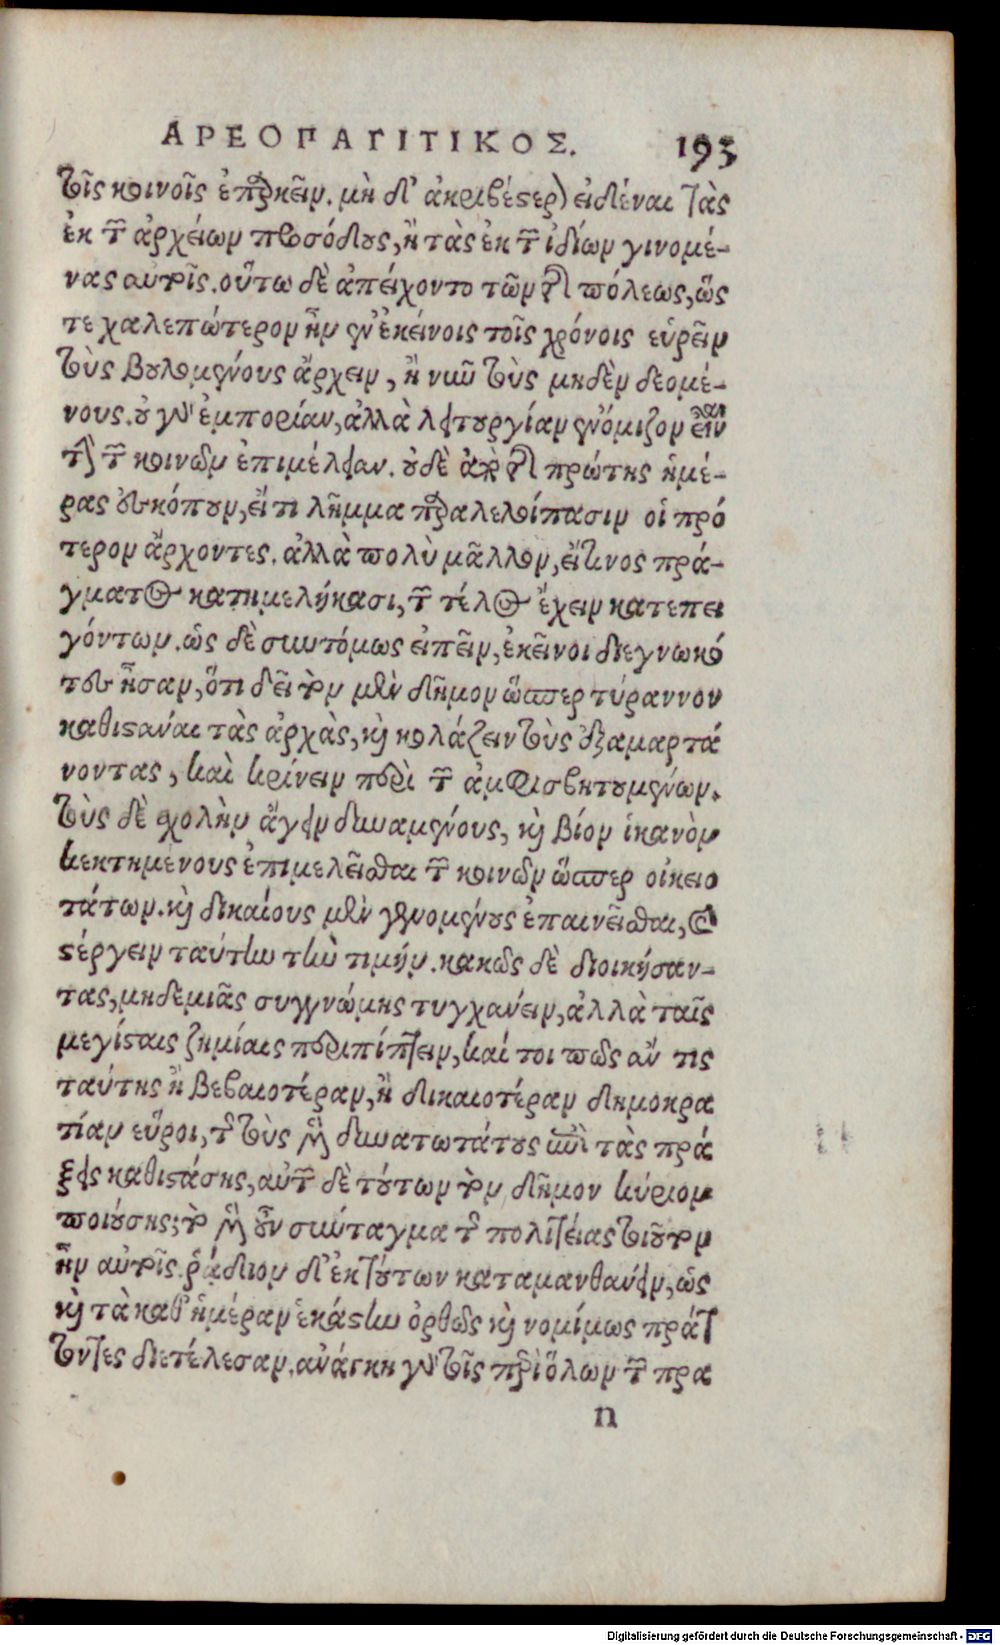 ΑΡΕΟΠΑΓΙΤΙΚΟΣ. 193
τοῖς κοινοῖς ἐπαρκεῖν. μὴ δ' ἀκριβέστερον εἰδέναι τὰς
ἐκ τῶν ἀρχείων προσόδους, ἢ τὰς ἐκ τῶν ἰδίων γινομέ-
νας αὐτοῖς. οὕτω δὲ ἀπείχοντο τῶν τῆς πόλεως, ὥς
τε χαλεπώτερον ἦν ἐν ἐκείνοις τοῖς χρόνοις εὑρεῖν
τοὺς βουλομένους ἄρχειν, ἢ νῦν τοὺς μηδὲν δεομέ-
νους. οὐ γὰρ ἐμπορίαν, ἀλλὰ λειτουργίαν ἐνόμιζον εἶναι
τὴν τῶν κοινῶν ἐπιμέλειαν. οὐδὲ ἀπὸ τῆς πρώτης ἡμέ-
ρας ἐσκόπουν, εἴ τι λῆμμα παραλελοίπασιν οἱ πρό
τερον ἄρχοντες. ἀλλὰ πολὺ μᾶλλον, εἴ τινος πρά-
γματος κατημελήκασι, τῶν τέλος ἔχειν κατεπει
γόντων. ὡς δὲ συντόμως εἰπεῖν, ἐκεῖνοι διεγνωκό
τες ἦσαν, ὅτι δεῖ τὸν μὲν δῆμον ὥσπερ τύραννον
καθιστάναι τὰς ἀρχὰς, καὶ κολάζειν τοὺς ἐξαμαρτά
νοντας, καὶ κρίνειν περὶ τῶν ἀμφισβητουμένων.
τοὺς δὲ σχολὴν ἄγειν δυναμένους, καὶ βίον ἱκανὸν
κεκτημένους ἐπιμελεῖσθαι τῶν κοινῶν ὥσπερ οἰκειο
τάτων. καὶ δικαίους μὲν γενομένους ἐπαινεῖσθαι, καὶ
στέργειν ταύτην τὴν τιμήν. κακῶς δὲ διοικήσαν-
τας, μηδεμιᾶς συγγνώμης τυγχάνειν, ἀλλὰ ταῖς
μεγίσταις ζημίαις περιπίπτειν, καί τοι πῶς ἄν τις
ταύτης ἢ βεβαιοτέραν, ἢ δικαιοτέραν δημοκρα
τίαν εὕροι, τῆς τοὺς μὲν δυνατωτάτους ἐπὶ τὰς πρά
ξεις καθιστάσης, αὐτῶν δὲ τούτων τὸν δῆμον κύριον
ποιούσης; τὸ μὲν οὖν σύνταγμα τῆς πολιτείας τοιοῦτον
ἦν αὐτοῖς. ῥᾴδιον δ' ἐκ τούτων καταμανθάνειν, ὡς
καὶ τὰ καθ' ἡμέραν ἑκάστην ὀρθῶς καὶ νομίμως πράτ
τοντες διετέλεσαν. ἀνάγκη γὰρ τοῖς περὶ ὅλων τῶν πρα
n
Digitalisierung gefördert durch die Deutsche Forschungsgemeinschaft - DFG